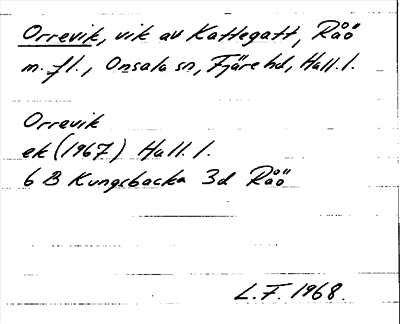 Orrevik, vik av Kattegatt, Råö
m. fl., Onsala sn, Fjäre hd, Hall. l.
Orrevik
ek (1967) Hall. l.
6 B Kungsbacka 3d Råö
L. F. 1968.